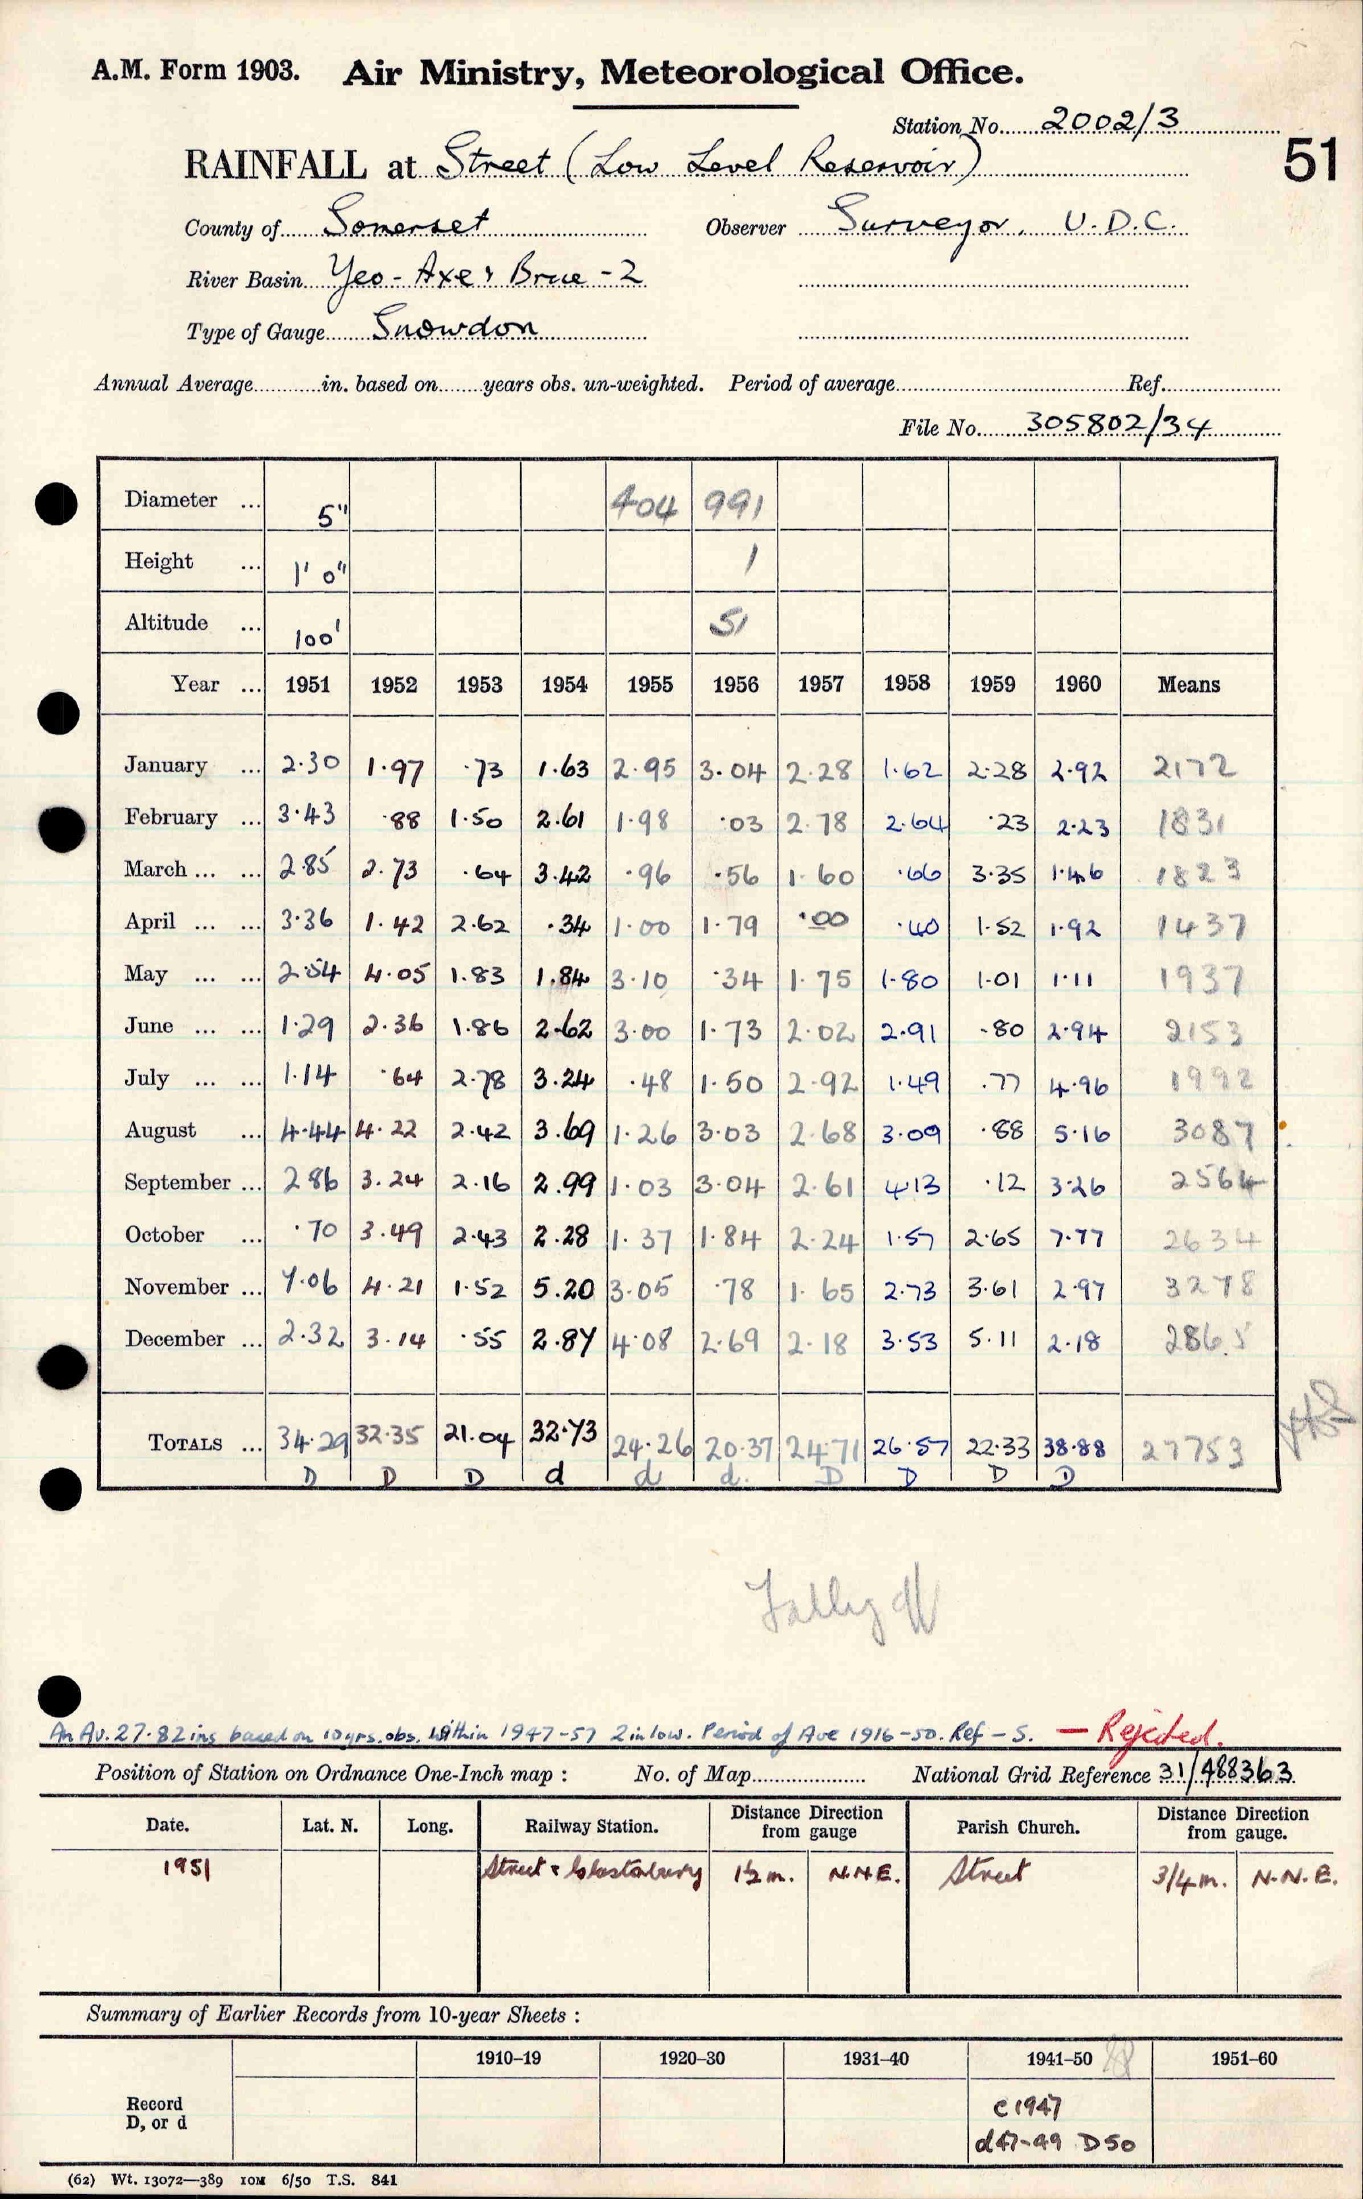 A.M. Form 1903. Air Ministry, Meteorological Office.
Station No. 2002/3
51
RAINFALL at Street (Low Level Reservoir)
County of Somerset Observer Surveyor, U.D.C.
River Basin Yeo - Axe & Brue - 2
Type of Gauge Snowdon
Annual Average in. based on years obs. un-weighted. Period of average Ref.
File No. 305802/34
Diameter ... 5" 404 991
Height ... 1' 0" 1
Altitude ... 100' 51
Year ... 1951 1952 1953 1954 1955 1956 1957 1958 1959 1960 Means
January ... 2.30 1.97 .73 1.63 2.95 3.04 2.28 1.62 2.28 2.92 2172
February ... 3.43 .88 1.50 2.61 1.98 .03 2.78 2.64 .23 2.23 1831
March ... ... 2.85 2.73 .64 3.42 .96 .56 1.60 .66 3.35 1.46 1823
April ... ... 3.36 1.42 2.62 .34 1.00 1.79 .00 .40 1.52 1.92 1437
May ... ... 2.54 4.05 1.83 1.84 3.10 .34 1.75 1.80 1.01 1.11 1937
June ... ... 1.29 2.36 1.86 2.62 3.00 1.73 2.02 2.91 .80 2.94 2153
July ... ... 1.14 .64 2.78 3.24 .48 1.50 2.92 1.49 .77 4.96 1992
August ... 4.44 4.22 2.42 3.69 1.26 3.03 2.68 3.09 .88 5.16 3087
September ... 2.86 3.24 2.16 2.99 1.03 3.04 2.61 4.13 .12 3.26 2564
October ... .70 3.49 2.43 2.28 1.37 1.84 2.24 1.57 2.65 7.77 2634
November ... 7.06 4.21 1.52 5.20 3.05 .78 1.65 2.73 3.61 2.97 3278
December ... 2.32 3.14 .55 2.87 4.08 2.69 2.18 3.53 5.11 2.18 2865
TOTALS ... 34.29 32.35 21.04 32.73 24.26 20.37 24.71 26.57 22.33 38.88 27753
D D D d d d. D D D D
An Av. 27.82 ins based on 10 yrs. obs. within 1947-57 2 in low. Period of Ave 1916-50. Ref - S. — Rejected.
Position of Station on Ordnance One-Inch map : No. of Map National Grid Reference 31/488363
Date. Lat. N. Long. Railway Station. Distance Direction from gauge Parish Church. Distance Direction from gauge.
1951 Street & Glastonbury 1½ m. N.N.E. Street 3/4 m. N.N.E.
Summary of Earlier Records from 10-year Sheets :
1910–19 1920–30 1931–40 1941–50 1951–60
Record D, or d
c 1947
d47-49 D50
(62) Wt. 13072—389 10M 6/50 T.S. 841